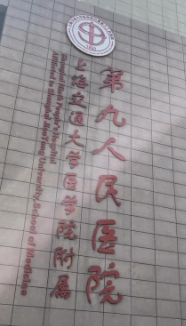 上海交通大学医学院附属
第九人民医院
Shanghai Ninth People's Hospital
Affiliated to Shanghai JiaoTong University, School of Medicine